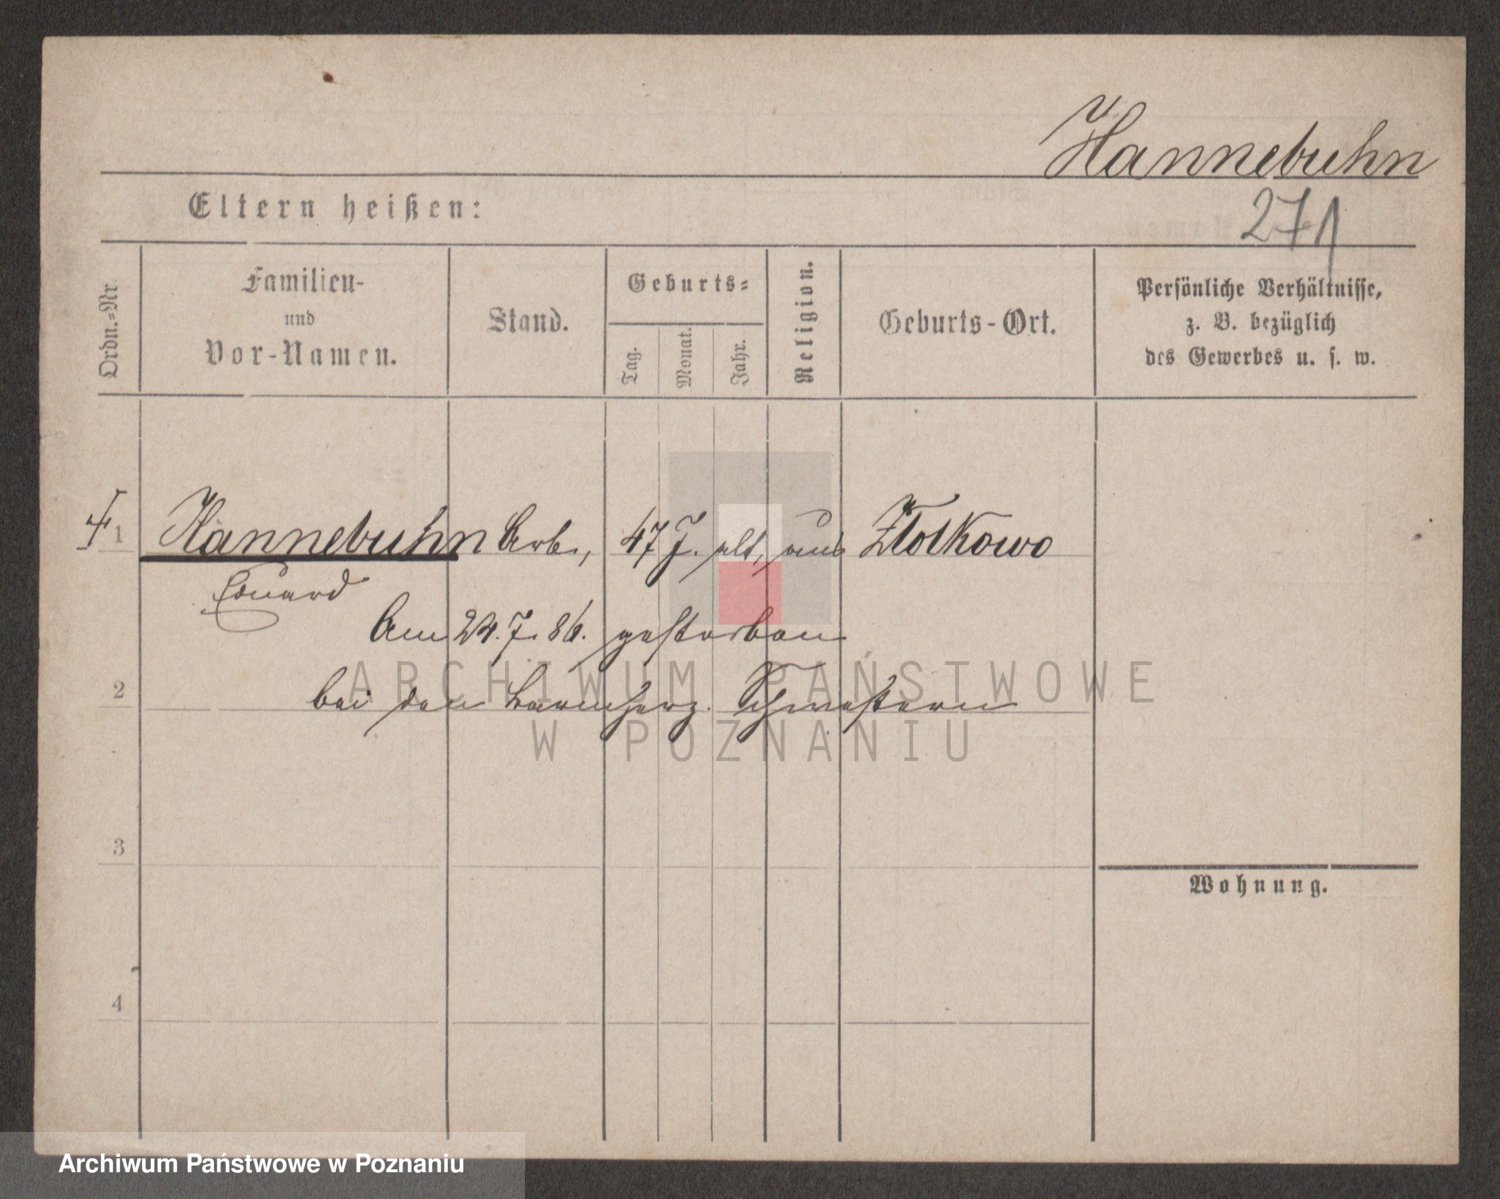 Hannebuhn
271
Eltern heißen:
Ordn.-Nr.
Familien-
und
Vor-Namen.
Stand.
Geburts-
Tag.
Monat.
Jahr.
Religion.
Geburts-Ort.
Persönliche Verhältnisse,
z. B. bezüglich
des Gewerbes u. s. w.
1 Hannebuhn Arb., 47 J. alt, aus Złotkowo
Eduard
Am 24.7.86. gestorben
2 bei den barmherz. Schwestern
ARCHIWUM PAŃSTWOWE
W POZNANIU
3
Wohnung.
4
Archiwum Państwowe w Poznaniu